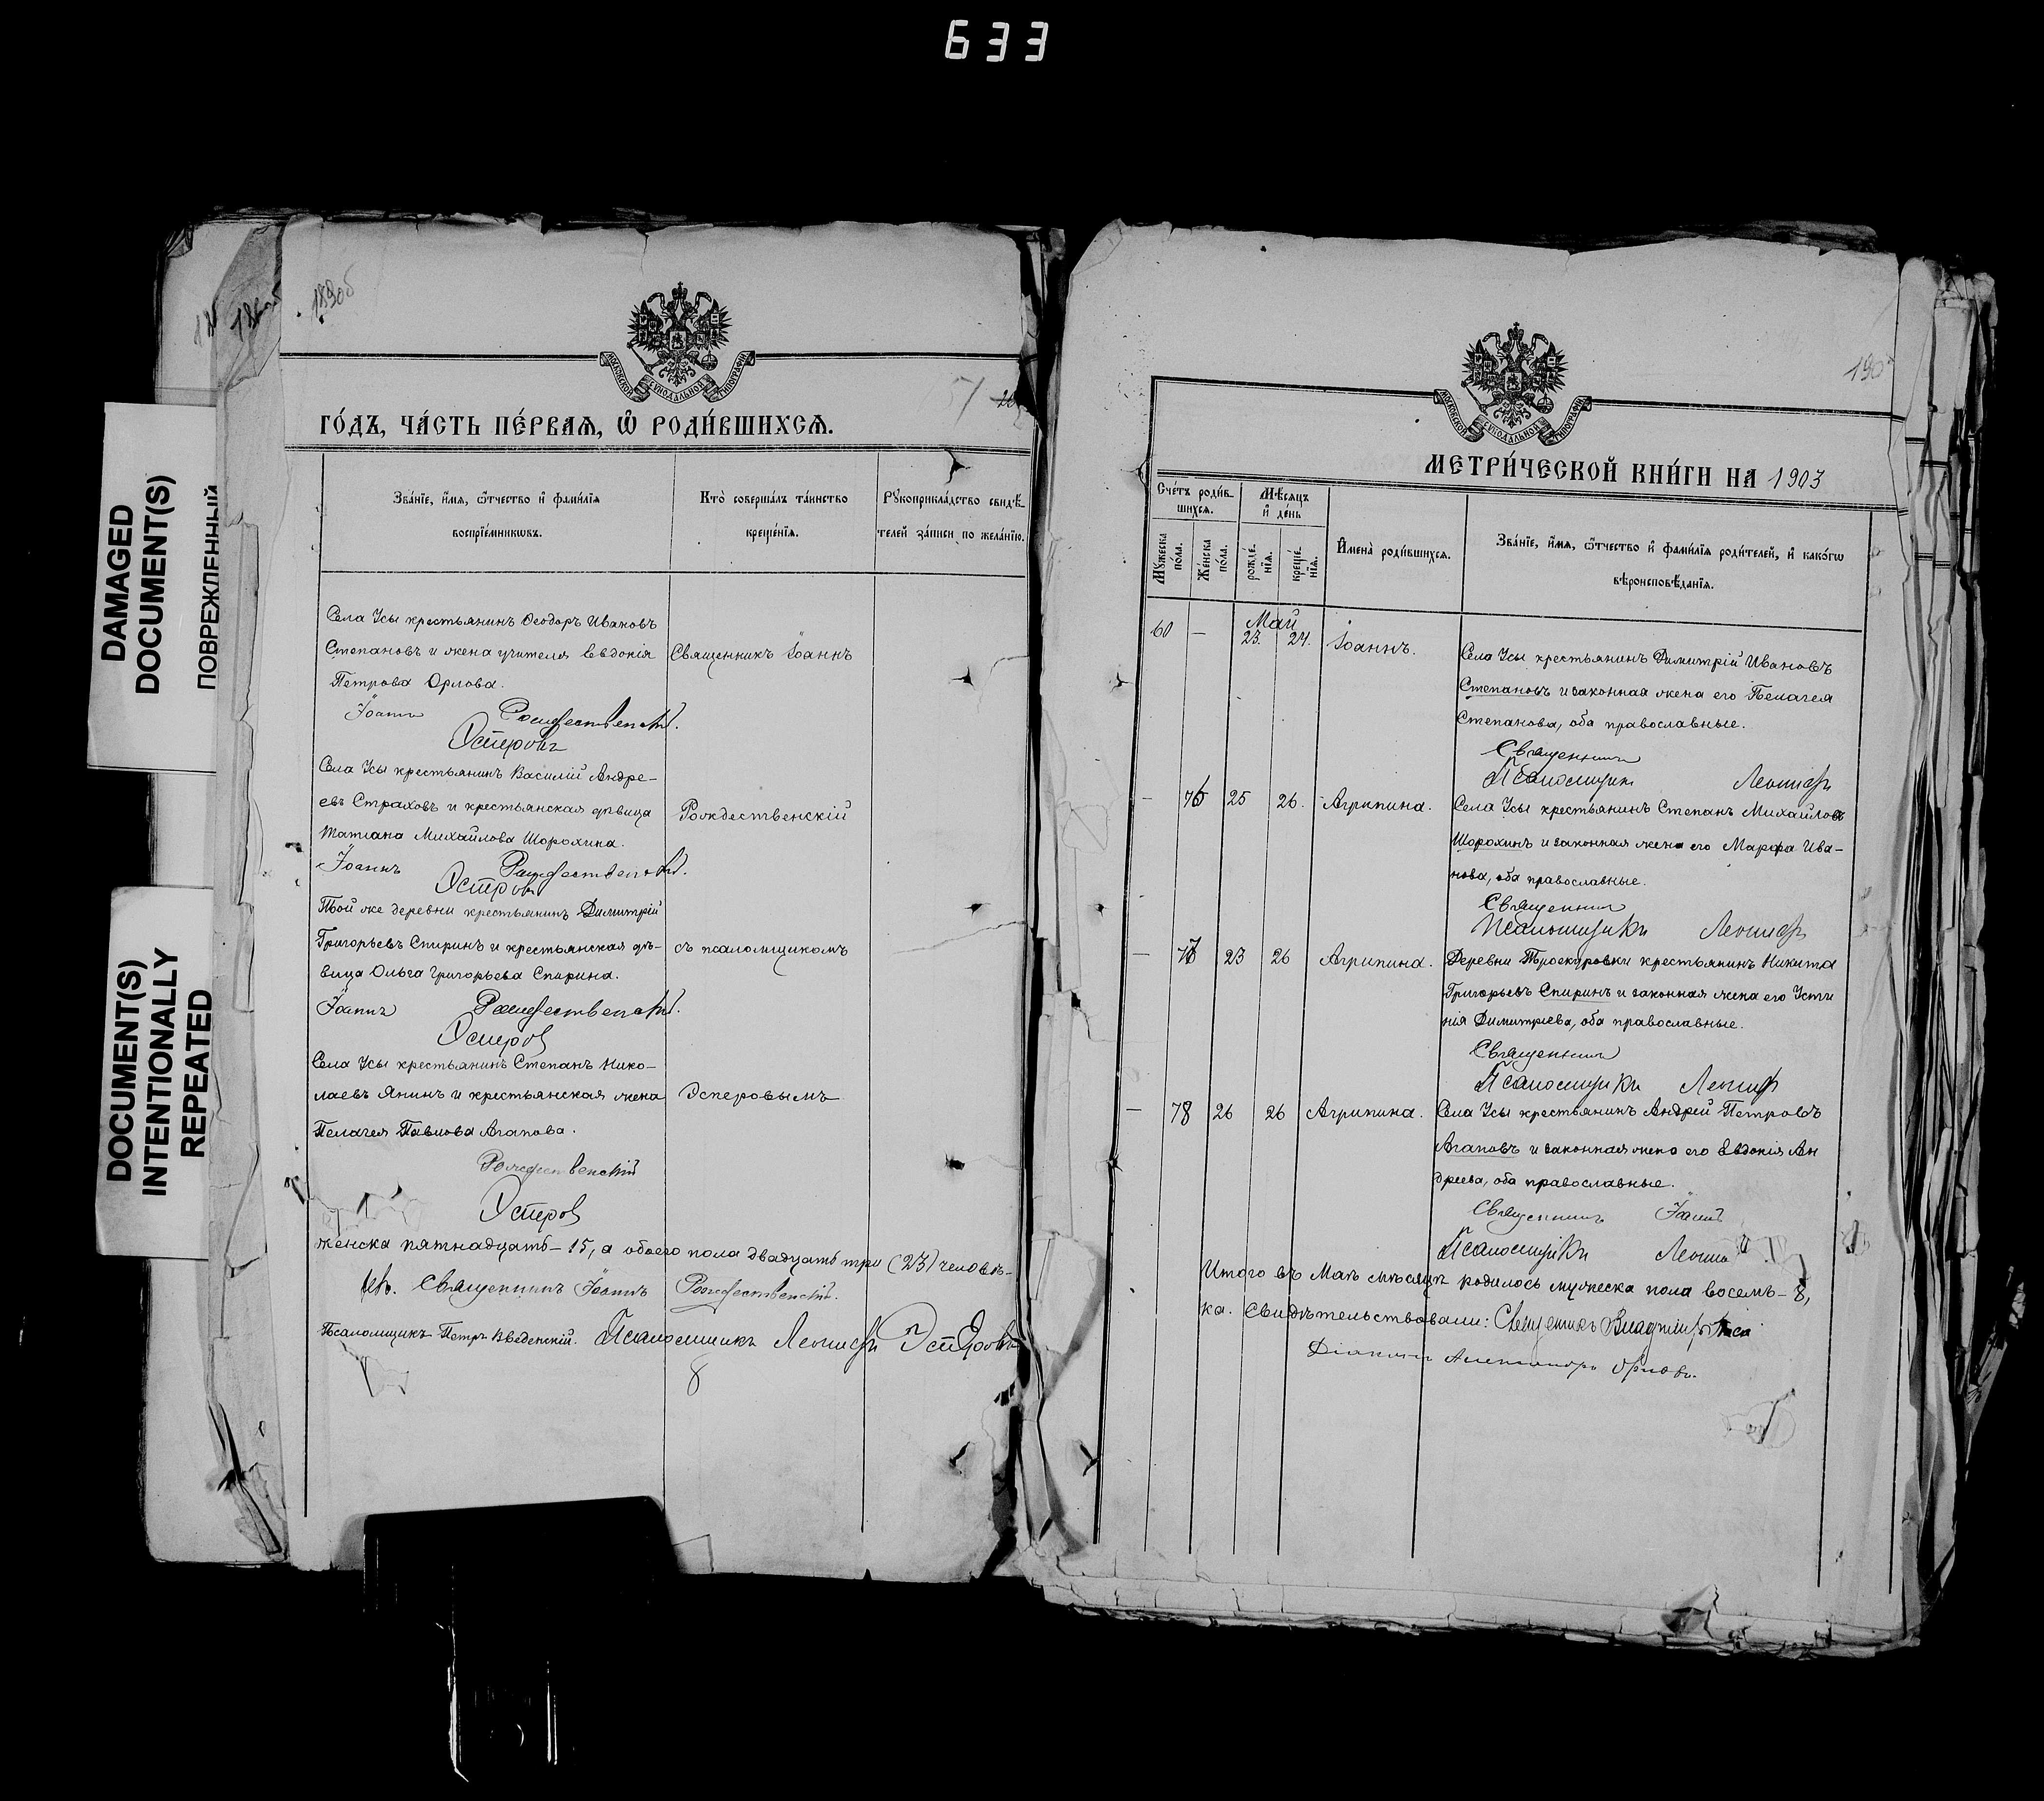 633
DAMAGED
DOCUMENT(S)
ПОВРЕЖДЕННЫЙ
DOCUMENT(S)
INTENTIONALLY
REPEATED
51
МОСКОВСКОЙ СѴНОДАЛЬНОЙ ТИПОГРАФІИ
ГО́ДЪ, ЧА́СТЬ ПЕ́РВАЯ, Ѡ҆ РОДИ́ВШИХСЯ.
Зва́нїе, и҆́мя, ѻ҆́тчество и҆ фами́лїя
воспрїе́мникѡвъ.
Кто̀ соверша́лъ та́инство
креще́нїя.
Рꙋкоприкла́дство свидѣ́-
телей за́писи по жела́нїю.
Села Усы крестьянинъ Ѳеодоръ Ивановъ
Степановъ и жена учителя Евдокія
Петрова Орлова.
Священникъ Іоаннъ
Іоаннъ Рождественскій.
Эсперовъ
Села Усы крестьянинъ Василій Андре-
евъ Страховъ и крестьянская дѣвица
Татіана Михайлова Шорохина.
Рождественскій
Іоаннъ Рождественскій.
Эсперовъ
Той же деревни крестьянинъ Димитрій
Григорьевъ Спиринъ и крестьянская дѣ-
вица Ольга Григорьева Спирина.
съ псаломщикомъ
Іоаннъ Рождественскій.
Эсперовъ
Села Усы крестьянинъ Степанъ Нико-
лаевъ Янинъ и крестьянская жена
Пелагея Павлова Агапова.
Эсперовымъ
Рождественскій
Эсперовъ
женска пятнадцать – 15, а обоего пола двадцать три (23) человѣ-
Священникъ Іоаннъ Рождественскій.
Псаломщикъ Петръ Введенскій. Псаломщикъ Леонидъ Эсперовъ
8
МОСКОВСКОЙ СѴНОДАЛЬНОЙ ТИПОГРАФІИ
МЕТРИ́ЧЕСКОЙ КНИ́ГИ НА 1903
Сче́тъ роди́в-
шихся.
Мѣ́сяцъ
и҆ де́нь
Мꙋ́жеска
по́ла.
Же́нска
по́ла.
рожде́-
нїя.
креще́-
нїя.
И҆мена̀ роди́вшихся.
Зва́нїе, и҆́мя, ѻ҆́тчество и҆ фами́лїя роди́телей, и҆ како́гѡ
вѣроисповѣ́данїя.
Май
60 – 23. 24. Іоаннъ.
Села Усы крестьянинъ Димитрій Ивановъ
Степановъ и законная жена его Пелагея
Степанова, оба православные.
Священникъ
Псаломщикъ Леонидъ
– 76 25 26. Агрипина.
Села Усы крестьянинъ Степанъ Михайловъ
Шорохинъ и законная жена его Марфа Ива-
нова, оба православные.
Священникъ
Псаломщикъ Леонидъ
– 77 23 26 Агрипина.
Деревни Троекуровки крестьянинъ Никита
Григорьевъ Спиринъ и законная жена его Усти
нія Димитріева, оба православные.
Священникъ
Псаломщикъ Леонидъ
– 78 26 26 Агрипина.
Села Усы крестьянинъ Андрей Петровъ
Агаповъ и законная жена его Евдокія Ан
дреева, оба православные.
Священникъ Іоаннъ
Псаломщикъ Леонидъ
Итого въ Маѣ мѣсяцѣ родилось мужеска пола восемь – 8,
ка. Свидѣтельствовали: Священникъ
Діаконъ Александръ Орловъ.